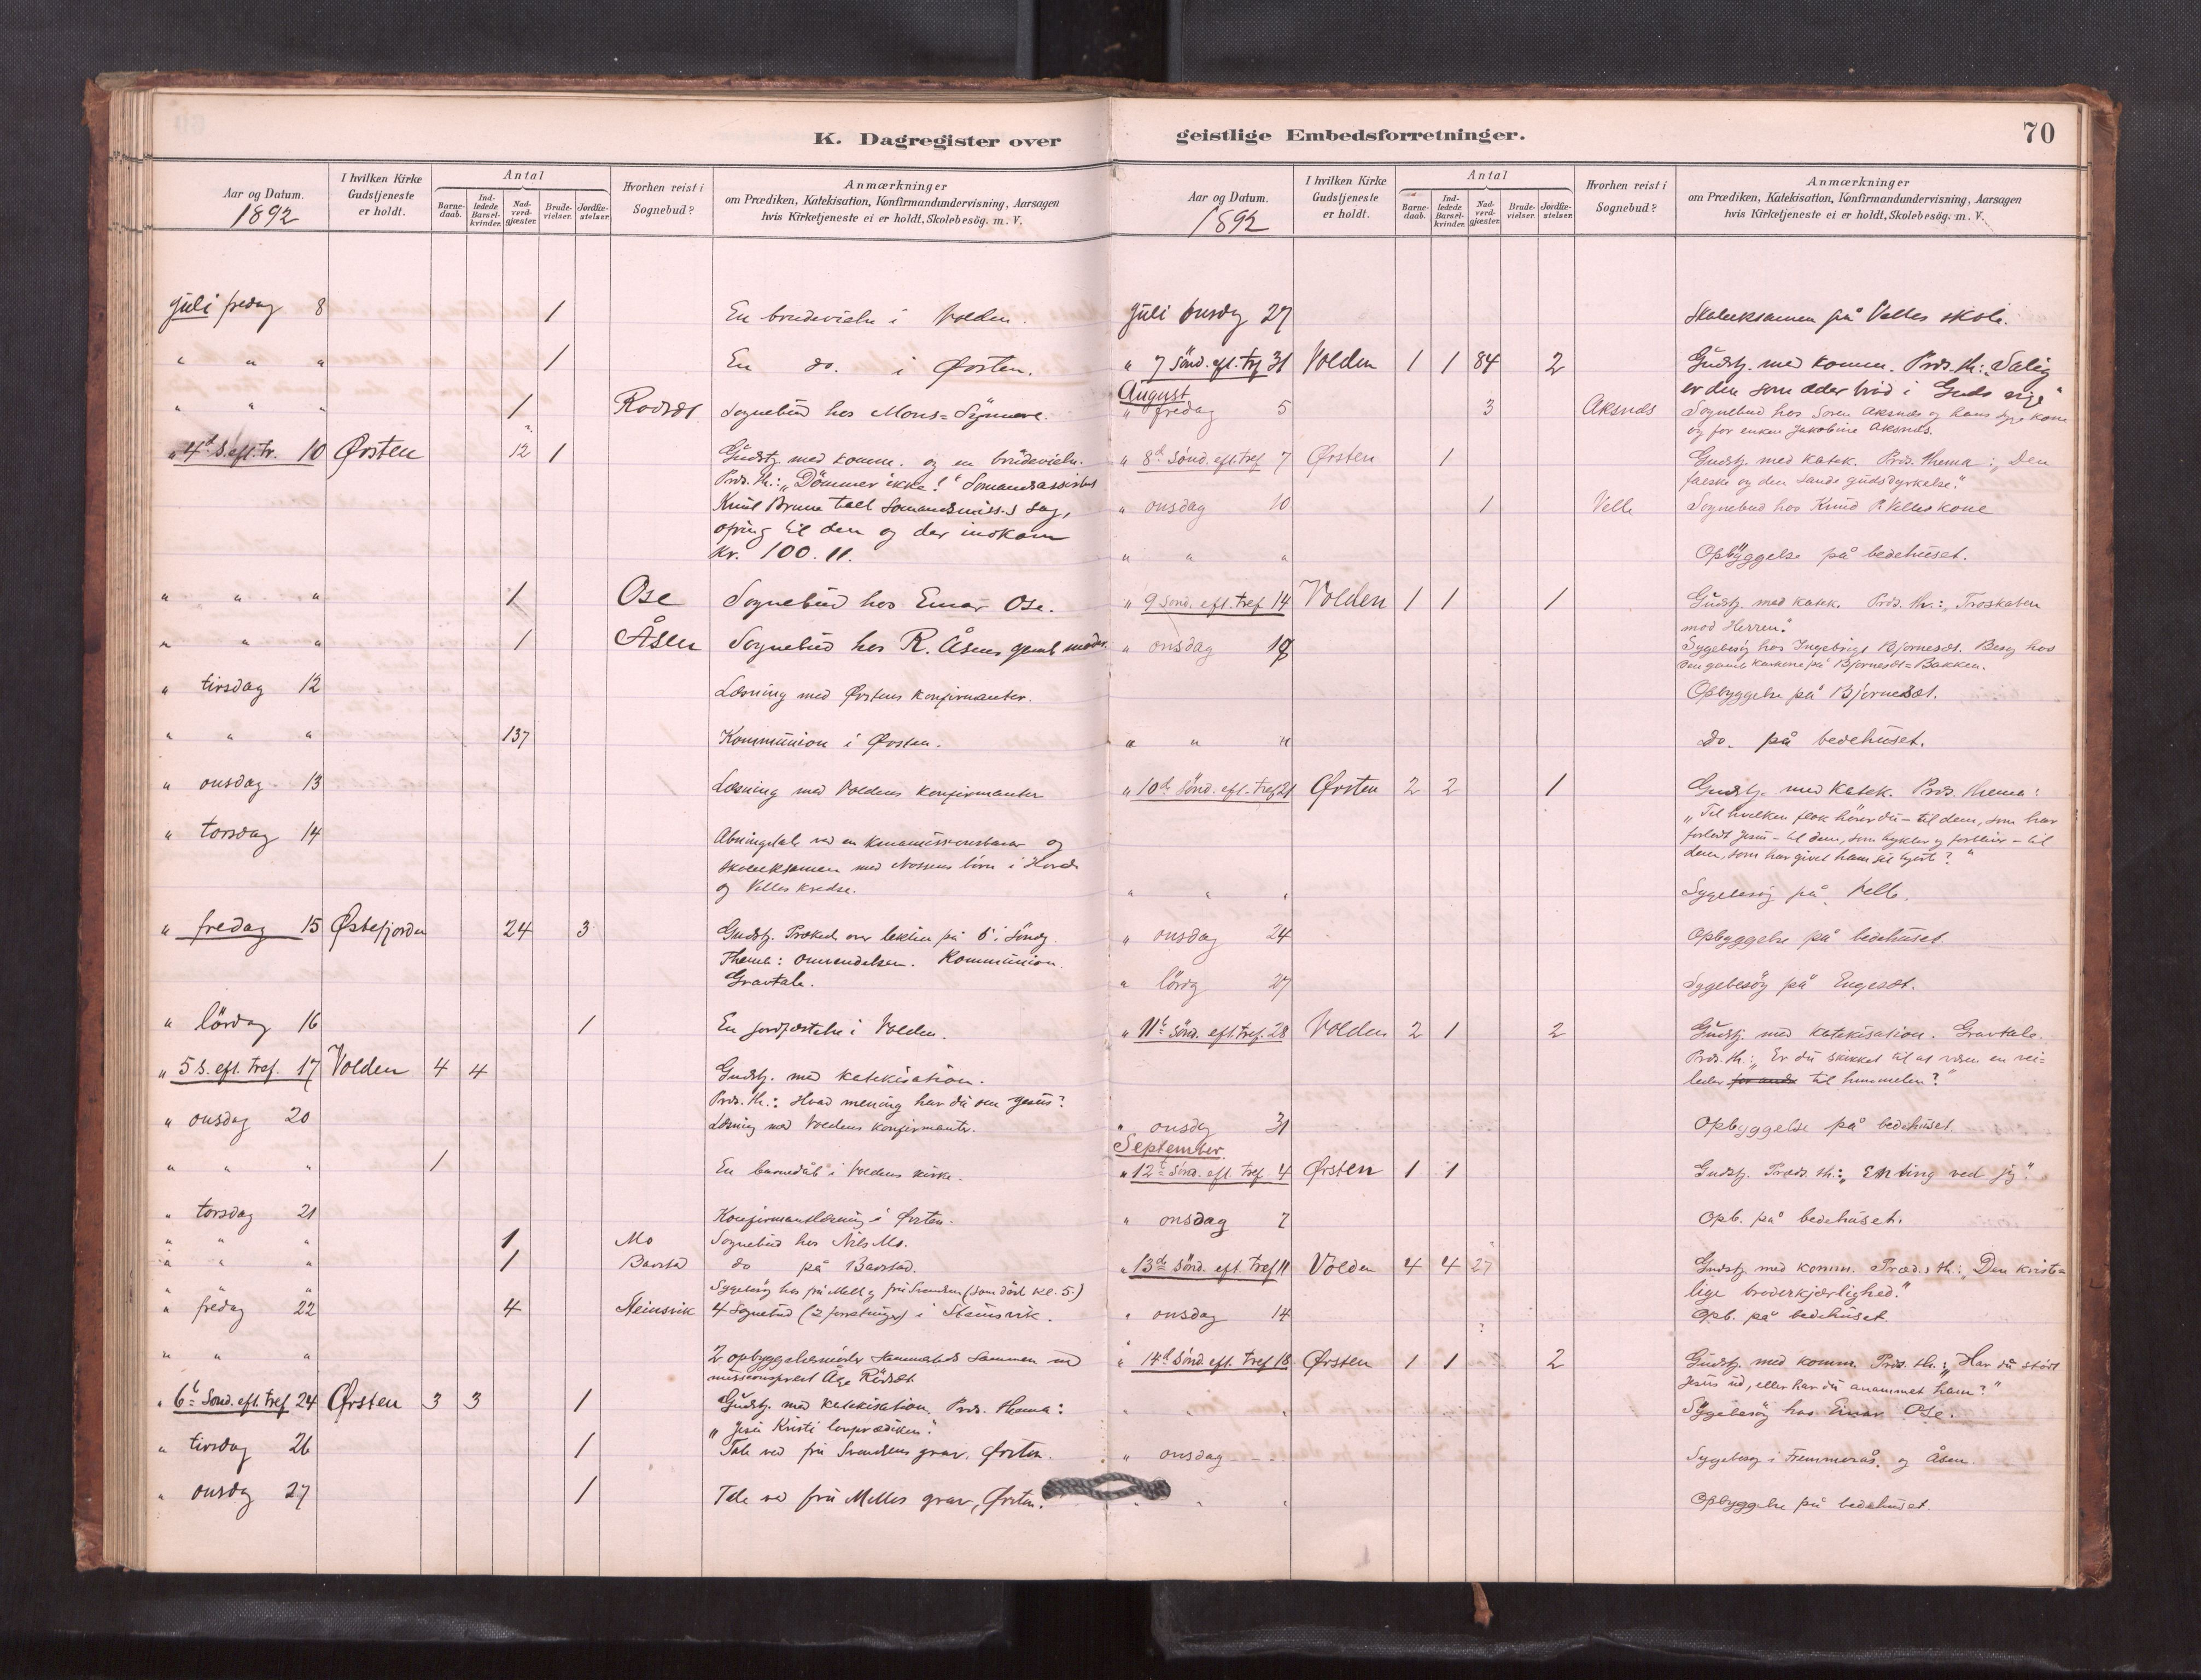 K. Dagregister over
Aar og Datum.
1892
I hvilken Kirke
Gudstjeneste
er holdt.
Antal
Barne-
daab.
Ind-
ledede
Barsel-
kvinder.
Nad-
verd-
gjæster.
Brude-
vielser.
Jordfæ-
stelser.
Hvorhen reist i
Sognebud?
Anmærkninger
om Prædiken, Katekisation, Konfirmandundervisning, Aarsagen
hvis Kirketjeneste ei er holdt, Skolebesög. m. V.
Juli fredag 8 1 En brudevielse i Volden.
" " " 1 En do. i Ørsten.
" " " 1 Sognebud hos Mons
" 4d S. eft. tr. 10 Ørsten 12 1 Gudstj. med komm. og en brudevielse.
Præd. th.: "Dømmer ikke!"
Knut Brune talt
til den og der indkom
kr. 100.11.
" " " 1 Ose Sognebud hos Einar Ose.
" " " 1 Åsen Sognebud hos R. Åsens gamle moder.
" tirsdag 12 Læsning med Ørstens konfirmanter.
" " " 137 Kommunion i Ørsten.
" onsdag 13 Læsning med Voldens konfirmanter
" torsdag 14 Åbningstale ved en og
skoleeksamen med børn i
og Velles kredse.
" fredag 15 Østefjorden 24 3 Gudstj. Præked. over lektien på 6. söndg.
Thema: Omvendelsen. Kommunion.
Gravtale.
" lördag 16 1 En jordfæstelse i Volden.
" 5 S. eft. tref. 17 Volden 4 4 Gudstj. med katekisation.
Præd. th.: Hvad mening har du om Jesus?
" onsdag 20 Læsning med Voldens konfirmanter.
" " " 1 En barnedåb i Voldens kirke.
" torsdag 21 Konfirmantlæsning i Ørsten.
" " " 1 Mo Sognebud hos Nils Mo.
" " " 1 Barstad do på Barstad.
" " Sygebesög hos fru Melle og fru Svendsen (som döde kl. 5.)
" fredag 22 4 Steinsvik 4 Sognebud (2 forretninger) i Steinsvik.
" " " 2 opbyggelsesmöder sammen med
missionsprest Åge Rödset.
" 6t Sönd. eft. tref 24 Ørsten 3 3 1 Gudstj. med katekisation. Præd. thema:
"Jesu Kristi
" tirsdag 26 1 Tale ved fru Svendsens grav, Ørsten.
" onsdag 27 1 Tale ved fru Melles grav, Ørsten.
geistlige Embedsforretninger.
70
Aar og Datum.
1892
I hvilken Kirke
Gudstjeneste
er holdt.
Antal
Barne-
daab.
Ind-
ledede
Barsel-
kvinder.
Nad-
verd-
gjæster.
Brude-
vielser.
Jordfæ-
stelser.
Hvorhen reist i
Sognebud?
Anmærkninger
om Prædiken, Katekisation, Konfirmandundervisning, Aarsagen
hvis Kirketjeneste ei er holdt, Skolebesög. m. V.
Juli onsdag 27 Skoleeksamen på Velles skole.
" 7 Sönd. eft. tref 31 Volden 1 1 84 2 Gudstj. med komm. Præd. th.: "Salig
er den som æder bröd i Guds rige"
August
" fredag 5 3 Aksnes Sognebud hos Søren Aksnes og hans syge kone
og for enken Jakobine Aksnes.
" 8d Sönd. eft. tref 7 Ørsten 1 Gudstj. med katek. Præd. thema: "Den
falske og den sande gudsdyrkelse."
" onsdag 10 1 Velle Sognebud hos Knud P. Velles kone
" " " Opbyggelse på bedehuset.
" 9 Sönd. eft. tref 14 Volden 1 1 1 Gudstj. med katek. Præd. th.: "Troskaben
mod Herren."
" onsdag Sygebesög hos Ingebrigt Bjørneset. Besög hos
den gamle på Bjørneset-Bakken.
Opbyggelse på Bjørneset.
" " " Do. på bedehuset.
" 10de Sönd. eft. tref 21 Ørsten 2 2 1 Gudstj. med katek. Præd. thema:
"Til hvilken flok hörer du - til dem, som har
forladt Jesus - til dem, som og forbliver - til
dem, som har givet ham sit hjerte?"
" " " Sygebesög på Velle.
" onsdag 24 Opbyggelse på bedehuset.
" lördg 27 Sygebesög på Engeset.
" 11t Sönd. eft. tref. 28 Volden 2 1 2 Gudstj. med katekisation. Gravtale.
Præd. th.: "Er du skikket til at være en vei-
leder for andre til himmelen?"
" onsdag 31 Opbyggelse på bedehuset.
September.
" 12t Sönd. eft. tref. 4 Ørsten 1 1 Gudstj. Præd. th.: "En ting ved jeg."
" onsdag 7 Opb. på bedehuset.
" 13de Sönd. eft. tref 11 Volden 4 4 27 Gudstj. med komm. Præd. th.: "Den kriste-
lige broderkjærlighed."
" onsdag 14 Opb. på bedehuset.
" 14d Sönd eft. tref 18 Ørsten 1 1 2 Gudstj. med komm. Præd. th.: "Har du stödt
Jesus ud, eller har du anammet ham?"
" " " Sygebesög hos Einar Ose.
" onsdag Sygebesög i og Åsen.
" " " Opbyggelse på bedehuset.